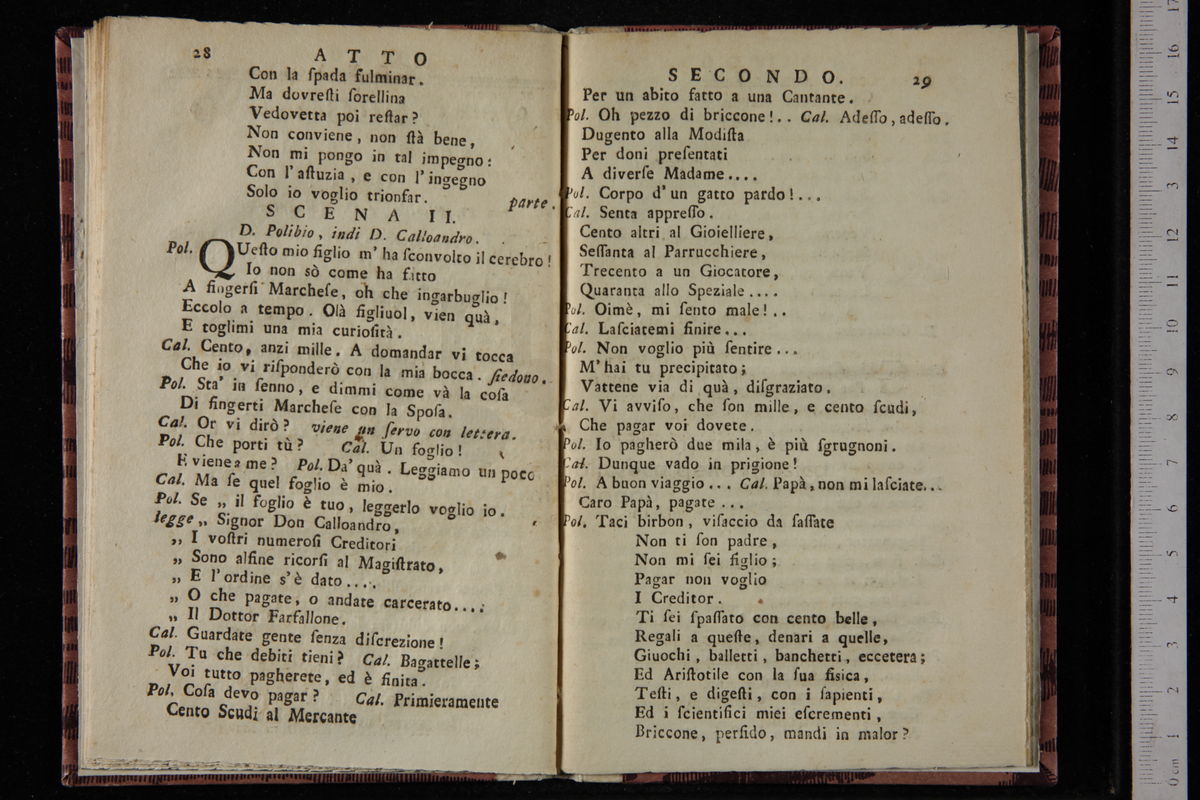 28 ATTO
Con la ſpada fulminar.
Ma dovreſti ſorellina
Vedovetta poi reſtar?
Non conviene, non ſtà bene,
Non mi pongo in tal impegno:
Con l'aſtuzia, e con l'ingegno
Solo io voglio trionfar. parte.
SCENA II.
D. Polibio, indi D. Calloandro.
Pol. QUeſto mio figlio m'ha ſconvolto il cerebro!
Io non sò come ha fatto
A fingerſi Marcheſe, oh che ingarbuglio!
Eccolo a tempo. Olà figliuol, vien quà,
E toglimi una mia curioſità.
Cal. Cento, anzi mille. A domandar vi tocca
Che io vi riſponderò con la mia bocca. ſiedono.
Pol. Sta' in ſenno, e dimmi come và la coſa
Di fingerti Marcheſe con la Spoſa.
Cal. Or vi dirò? viene un ſervo con lettera.
Pol. Che porti tù? Cal. Un foglio!
E viene a me? Pol. Da' quà. Leggiamo un poco
Cal. Ma ſe quel foglio è mio.
Pol. Se „ il foglio è tuo, leggerlo voglio io.
legge „ Signor Don Calloandro,
„ I voſtri numeroſi Creditori
„ Sono alfine ricorſi al Magiſtrato,
„ E l'ordine s'è dato....
„ O che pagate, o andate carcerato....
„ Il Dottor Farfallone.
Cal. Guardate gente ſenza diſcrezione!
Pol. Tu che debiti tieni? Cal. Bagattelle;
Voi tutto pagherete, ed è finita.
Pol. Coſa devo pagar? Cal. Primieramente
Cento Scudi al Mercante
SECONDO. 29
Per un abito fatto a una Cantante.
Pol. Oh pezzo di briccone!.. Cal. Adeſſo, adeſſo.
Dugento alla Modiſta
Per doni preſentati
A diverſe Madame....
Pol. Corpo d'un gatto pardo!...
Cal. Senta appreſſo.
Cento altri al Gioielliere,
Seſſanta al Parrucchiere,
Trecento a un Giocatore,
Quaranta allo Speziale....
Pol. Oimè, mi ſento male!..
Cal. Laſciatemi finire...
Pol. Non voglio più ſentire...
M'hai tu precipitato;
Vattene via di quà, diſgraziato.
Cal. Vi avviſo, che ſon mille, e cento ſcudi,
Che pagar voi dovete.
Pol. Io pagherò due mila, è più ſgrugnoni.
Cal. Dunque vado in prigione!
Pol. A buon viaggio... Cal. Papà, non mi laſciate...
Caro Papà, pagate...
Pol. Taci birbon, viſaccio da ſaſſate
Non ti ſon padre,
Non mi ſei figlio;
Pagar non voglio
I Creditor.
Ti ſei ſpaſſato con cento belle,
Regali a queſte, denari a quelle,
Giuochi, balletti, banchetti, eccetera;
Ed Ariſtotile con la ſua fiſica,
Teſti, e digeſti, con i ſapienti,
Ed i ſcientifici miei eſcrementi,
Briccone, perfido, mandi in malor?
0 cm 1 2 3 4 5 6 7 8 9 10 11 12 13 14 15 16 17